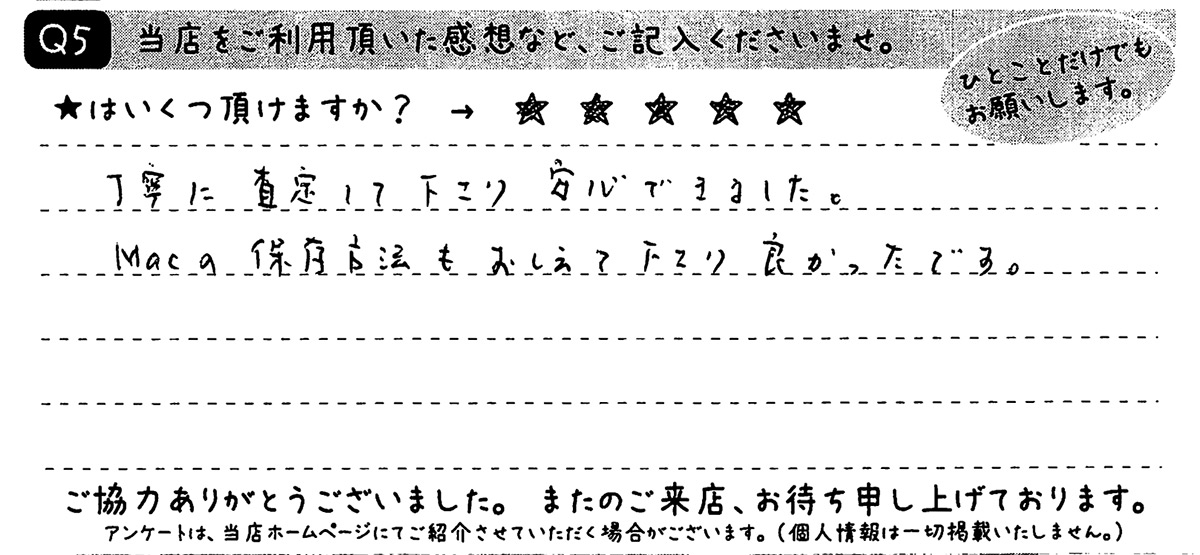 Q5 当店をご利用頂いた感想など、ご記入くださいませ。
ひとことだけでも
お願いします。
★はいくつ頂けますか？ → ★ ★ ★ ★ ★
丁寧に 査定して下さり 安心できました。
Macの 保存方法も おしえて下さり 良かったです。
ご協力ありがとうございました。 またのご来店、お待ち申し上げております。
アンケートは、当店ホームページにてご紹介させていただく場合がございます。（個人情報は一切掲載いたしません。）